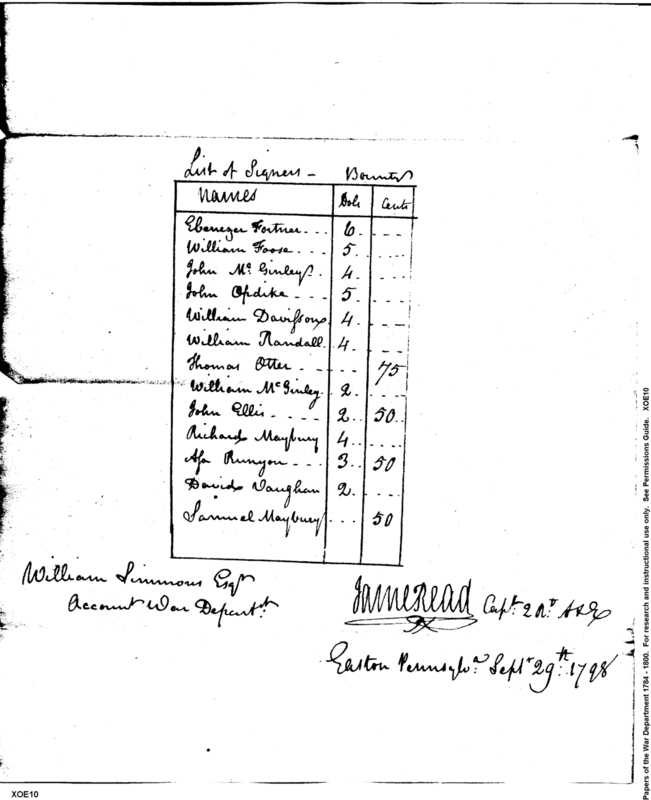 List of Signers - Bounty
Names Dols Cents
Ebenezer Fortner... 6 ....
William Foose.... 5 ....
John Mc Ginley. 4 ....
John Opdike.... 5 ....
William Davisson 4 ....
William Randall. 4 ....
Thomas Otter... .... 75
William McGinley. 2 ....
John Ellis..... 2 50
Richard Maybury 4 ....
Asa Runyon.... 3 50
David Vaughan 2 ....
Samuel Maybury ... 50
William Simmons Esqr
Account War Depart.t
James Read Capt. 2 Rt A&E
Easton Pennsylva. Septr 29th. 1798
Papers of the War Department 1784 - 1800. For research and instructional use only. See Permissions Guide. XOE10
XOE10